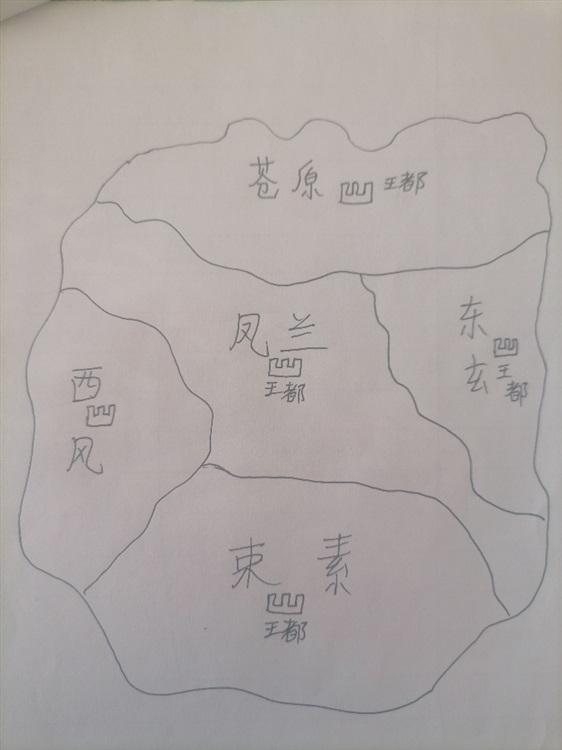 苍原 王都
凤兰
王都
东玄
王都
西风
束素
王都